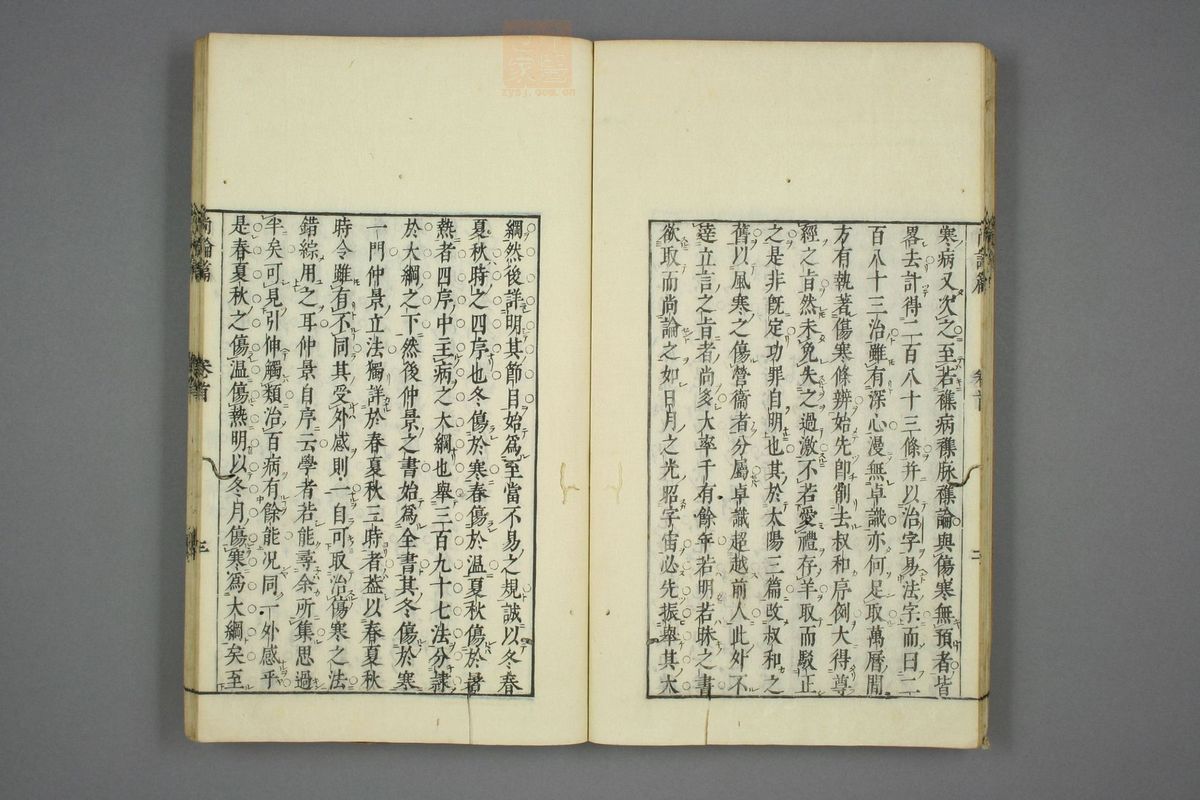 寒病又次之至若雜病雜脉雜論與傷寒無預者皆
畧去計得二百八十三條并以治字易法字而曰二
百八十三治雖有深心漫無卓識亦何足取萬曆間
方有執著傷寒條辨始先卽削去叔和序例大得尊
經之旨然未免失之過激不若愛禮存羊取而駁正
之是非既定功罪自明也其於太陽三篇改叔和之
舊以風寒之傷營衞者分屬卓識超越前人此外不
達立言之旨者尚多大率千有餘年若明若昧之書
欲取而尚論之如日月之光昭宇宙必先振舉其大
綱然後詳明其節目始爲至當不易之規誠以冬春
夏秋時之四序也冬傷於寒春傷於温夏秋傷於暑
熱者四序中主病之大綱也舉三百九十七法分隷
於大綱之下然後仲景之書始爲全書其冬傷於寒
一門仲景立法獨詳於春夏秋三時者葢以春夏秋
時令雖有不同其受外感則一自可取治傷寒之法
錯綜用之耳仲景自序云學者若能尋余所集思過
半矣可見引伸觸類治百病有餘能况同一外感乎
是春夏秋之傷温傷熱明以冬月傷寒爲大綱矣至
尚論篇
卷首
二
尚論篇
卷首
三
zysj.com.cn